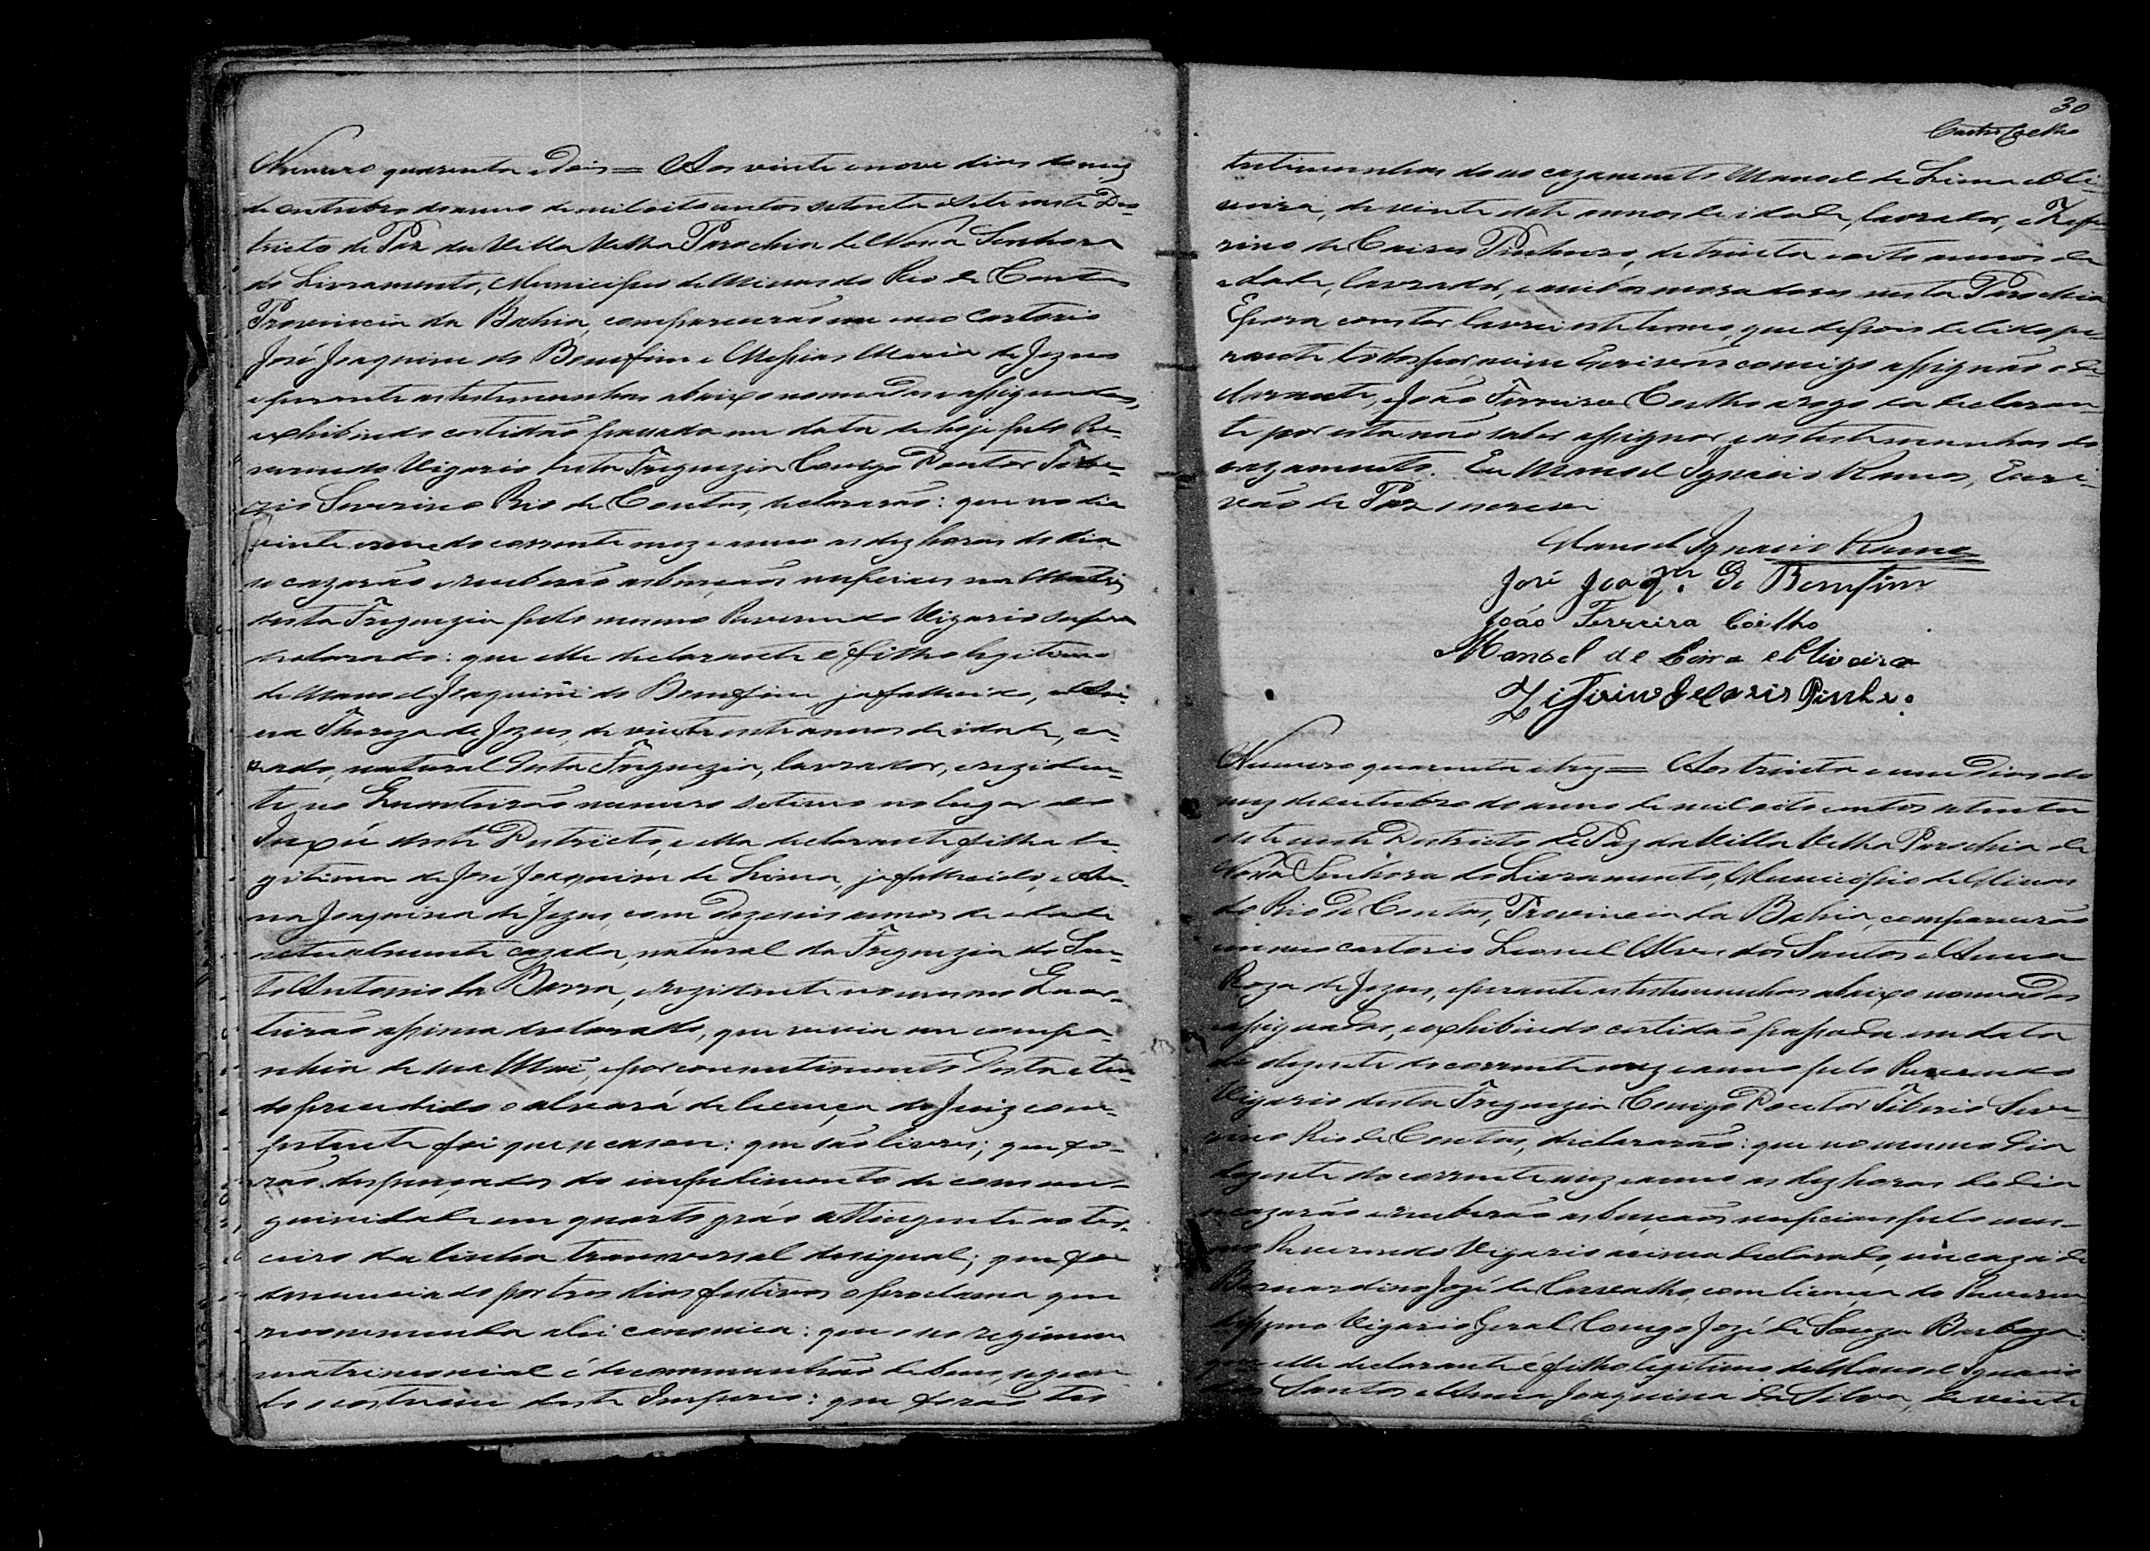 Numero quarenta e dois = Aos vinte e nove dias do mez
de outubro do anno de mil oito centos setenta e sete neste Dis-
tricto de Paz da Villa Velha Parochia de Nossa Senhora
do Livramento, Municipio de Minas do Rio de Contas
Provincia da Bahia, comparecerão em meo Cartorio
José Joaquim do Bomfim e Messias Maria de Jezus
e perante as testemunhas abaixo nomeadas e assignadas,
exhibindo certidão passada em data de hoje pelo Re-
verendo Vigario desta Freguezia Conego Doutor Tibe-
rio Severino Rio de Contas, declararão: que no dia
vinte e nove do corrente mez e anno as dez horas do dia
se cazarão e receberão as bençãos nupciaes na Matriz
desta Freguezia pelo mesmo Reverendo Vigario supra
declarado: que elle declarante é filho legitimo
de Manoel Joaquim do Bomfim, ja fallecido, e
na Thereza de Jezus, de vinte e sete annos de idade, ca-
zado, natural desta Freguezia, lavrador, e reziden-
te no Quarteirão numero setimo no lugar do
deste Districto, e ella declarante filha le-
gitima de José Joaquim de Lima, ja fallecido, e An-
na Joaquina de Jezus, com dezeseis annos de idade
actualmente cazada, natural da Freguezia de San-
to Antonio da Barra, e rezidente no mesmo Quar-
teirão assima declarado, que vivia em compa-
nhia de sua Mãe, e por consentimento desta e ten-
do precedido o alvará de licença do Juiz com-
petente foi que se casou: que são livres; que fo-
rão dispensados do impedimento de consan-
guinidade em quarto gráo attingente ao ter-
ceiro da linha transversal desigual; que foi
denunciado por tres dias festivos o proclama que
recommenda a lei canonica: que o seo regimen
matrimonial é de communhão de bens, segun-
do o costume deste Imperio: que forão tes
30
Castro Coelho
testimunhas do seo cazamento Manoel de Lima e Oli-
veira, de vinte e sete annos de idade, lavrador, e Zefe-
rino de Caires Pinheiro, de trinta e oito annos de
edade, lavrador, e ambos moradores nesta Parochia
E para constar lavrei este termo, que depois de lido pe-
rante todos por mim Escrivão comigo assignão o de-
clarante, João Ferreira Coelho a rogo da declaran-
te por esta não saber assignar, e as testemunhas do
cazamento. Eu Manoel Ignacio Ramos, Escri-
vão de Paz escrevi
Manoel Ignacio Ramos
José Joaqm. do Bomfim
João Ferreira Coelho
Manoel de Lima e Oliveira
Zifirino de Caris Pinhro.
Numero quarenta e trez = Aos trinta e um dias do
mez de outubro do anno de mil oito centos setenta
e sete neste Districto de Paz da Villa Velha Parochia de
Nossa Senhora do Livramento, Municipio de Minas
do Rio de Contas, Provincia da Bahia, comparecerão
em meo cartorio Leonel Alves dos Santos e Anna
Roza de Jezus, e perante as testemunhas abaixo nomeadas
e assignadas, exhibindo certidão passada em data
de dezesete do corrente mez e anno pelo Reverendo
Vigario desta Freguezia Conego Doutor Tiberio Seve-
rino Rio de Contas, declararão: que no mesmo dia
dezesete do corrente mez e anno as dez horas do dia
se cazarão e receberão as bençãos nupciaes pelo mes-
mo Reverendo Vigario acima declarado, em caza de
Bernardino José de Carvalho, com licença do Reveren-
dissimo Vigario Geral Conego José de Souza Barboza:
que elle declarante é filho legitimo de Manoel Ignacio
dos Santos e Anna Joaquina da Silva, de vinte